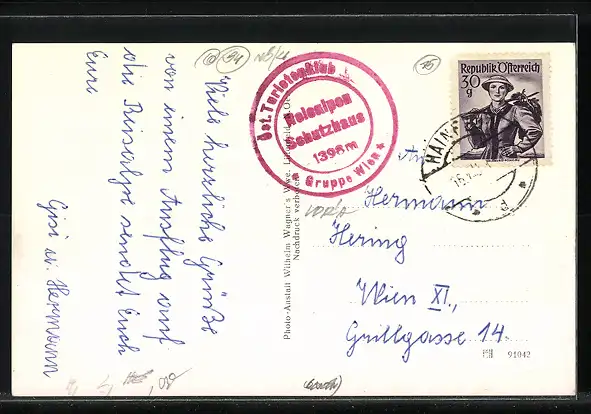 Viele herzliche Grüße
von einem Ausflug auf
die Reisalpe sendet Euch
Eure
Gisi u. Hermann
Öst. Turistenklub
Reisalpen
Schutzhaus
1398 m
* Gruppe Wien *
Photo-Anstalt Wilhelm Wagner's Wwe, Lilienfeld, N.Ö.
Nachdruck verboten
Republik Österreich
30
g
HAINF
An
Hermann
Hering
Wien XI.,
Grillgasse 14.
91042